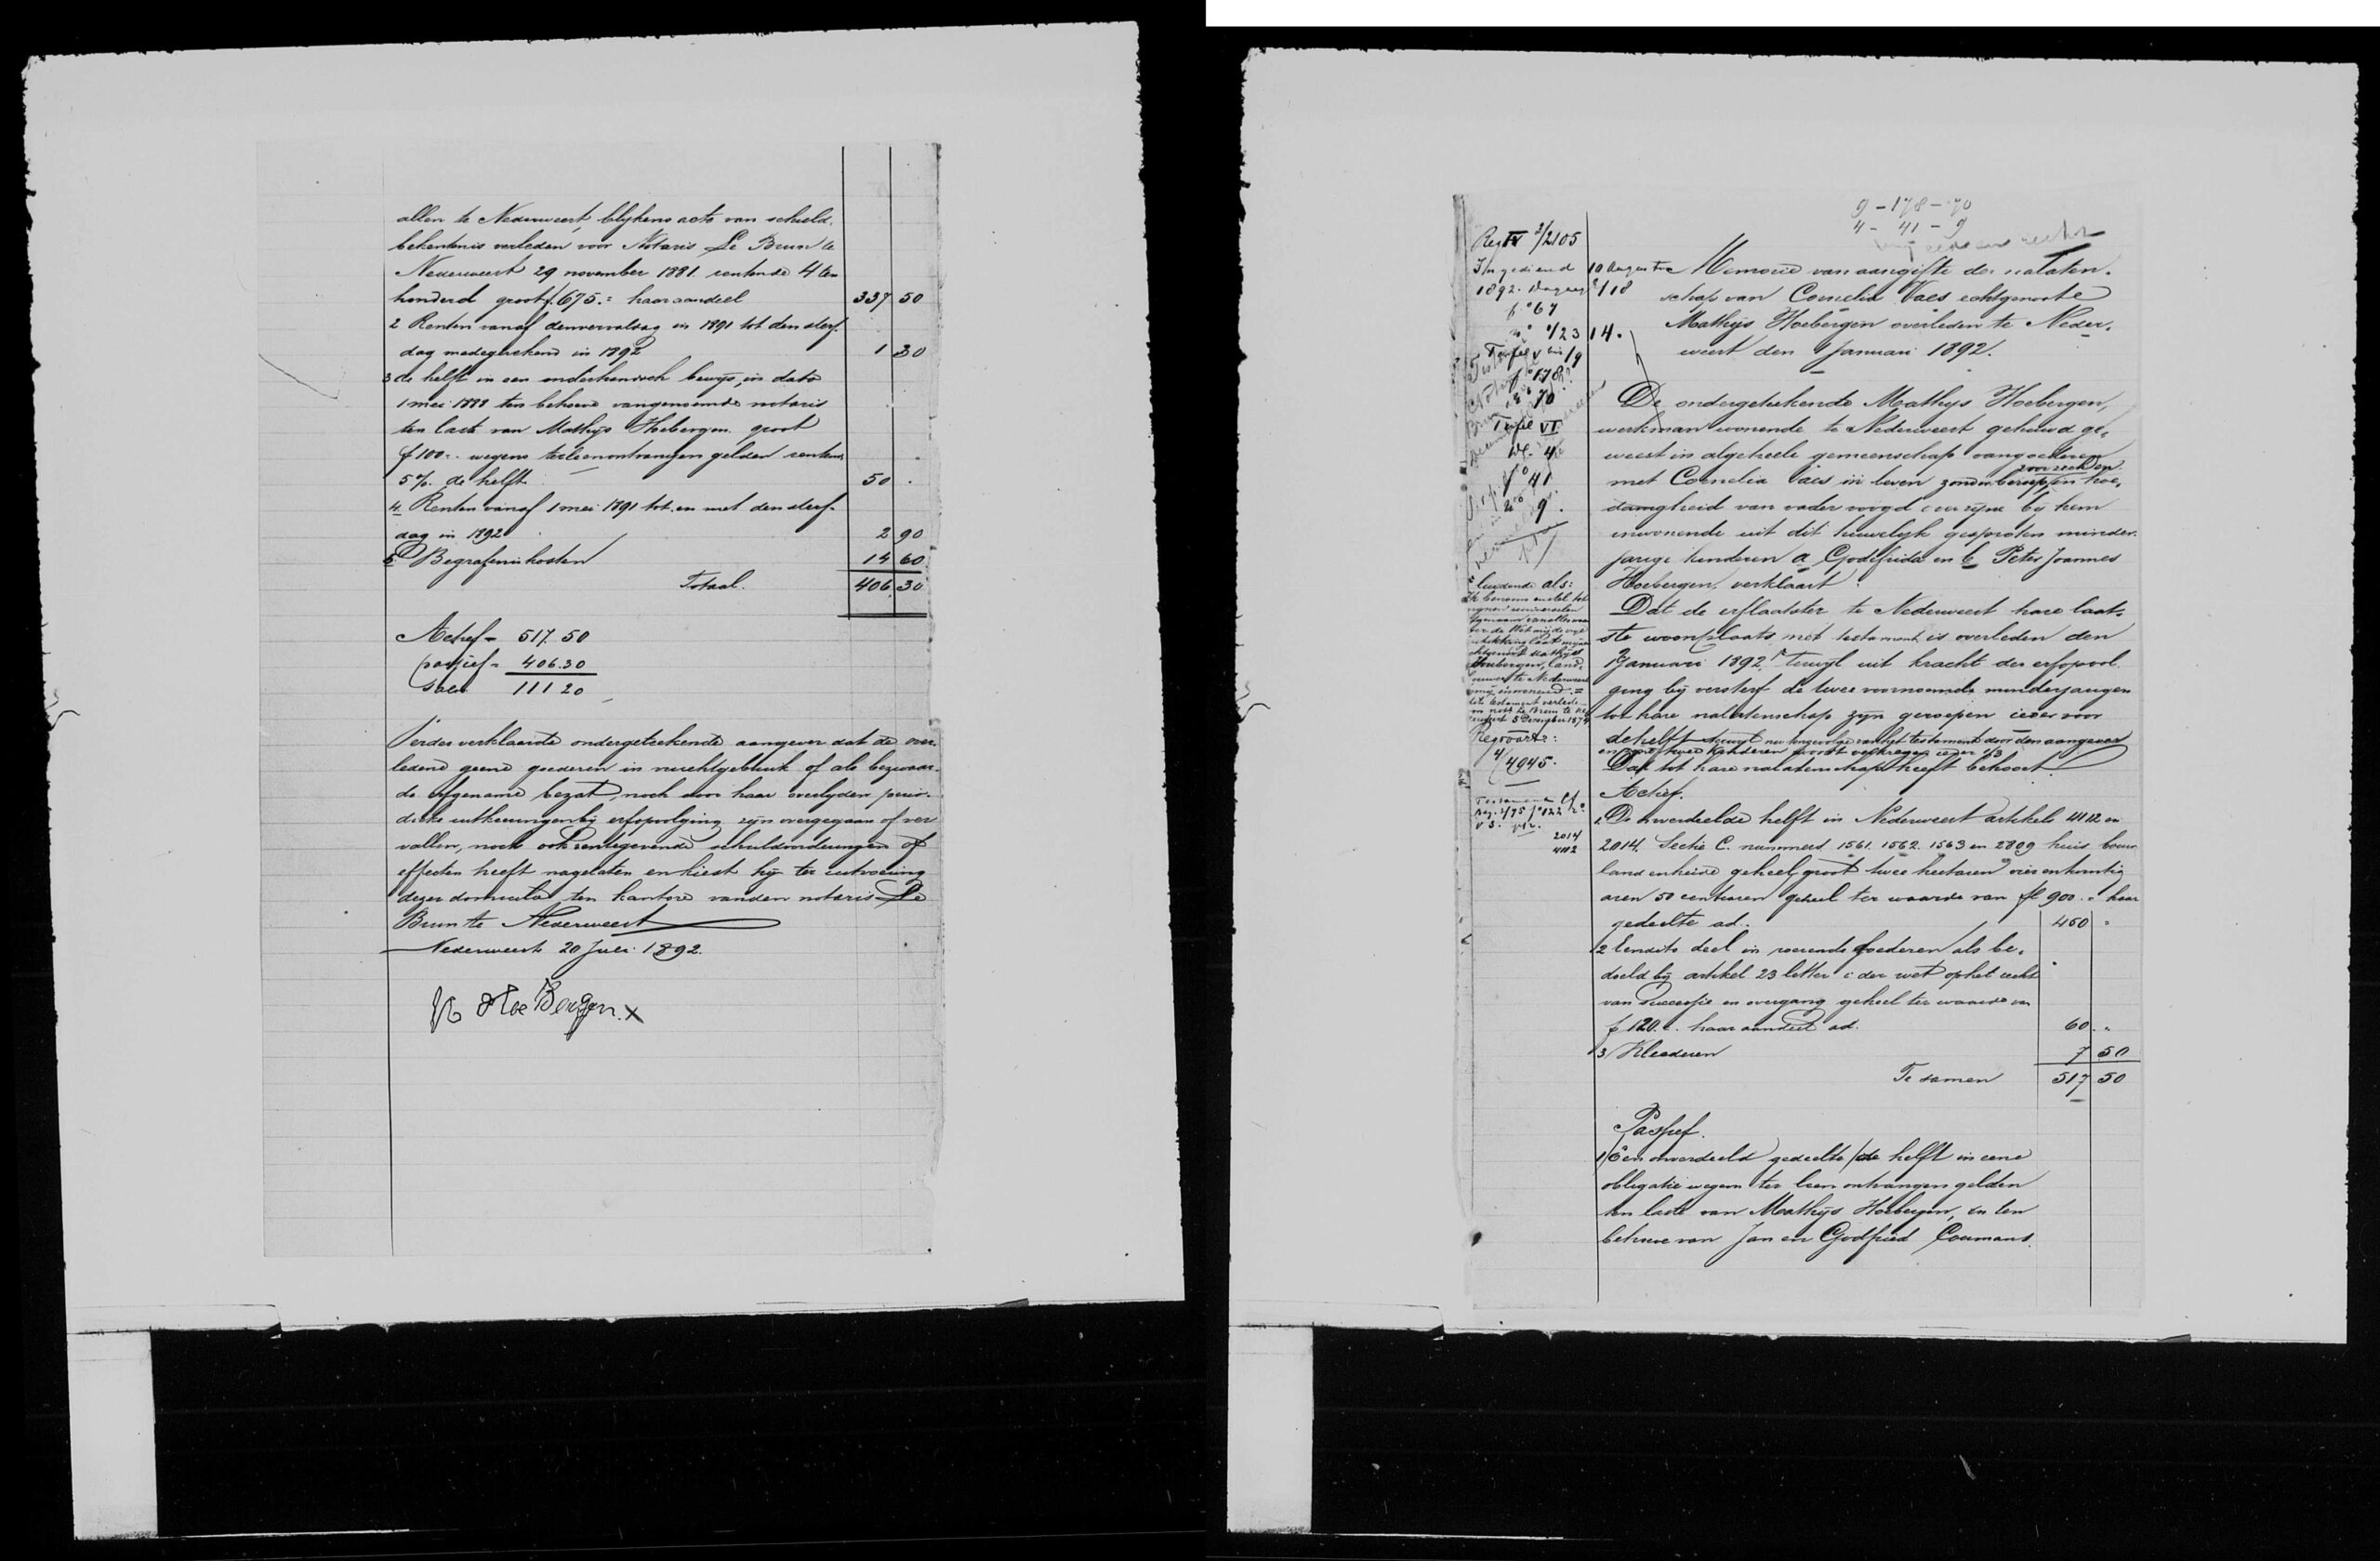 allen te Nederweert, blijkens acte van schuld.
bekentenis verleden voor Notaris Le Brun te
Nederweert 29 november 1881. rentende 4 ten
honderd groot f. 675.= haar aandeel 337 50
2 Renten vanaf den vervaldag in 1891 tot den sterf-
dag medegerekend in 1892 1 30
3 de helft in een onderhandsch bewijs, in dato
1 mei 1888 ten behoeve van genoemde notaris
ten laste van Mathijs Hoebergen groot
f 100.- wegens ter leen ontvangen gelden rentende
5%. de helft 50 .
4 Renten vanaf 1 mei 1891 tot en met den sterf-
dag in 1892 2 90
5 Begrafeniskosten 14 60
Totaal. 406 30
Actief = 517. 50
passief = 406.30
Saldo 111 20
Verder verklaarde ondergeteekende aangever dat de over-
ledene geene goederen in vruchtgebruik of als bezwaar-
de erfgename bezat, noch door haar overlijden perio-
dieke uitkeeringen bij erfopvolging zijn overgegaan of ver
vallen, noch ook rentegevende schuldvorderingen of
effecten heeft nagelaten en kiest hij ter uitvoering
dezer domicilie ten kantore van den notaris Le
Brun te Nederweert
Nederweert 20 Juli 1892.
M Hoe Bergen. X
9 - 178 - 70
4 - 41 - 9
Reg IV 2/2105
Ingediend 10 Augustus
1892. Dagreg 2/118
f° 67
n° 1/23 14.
Tafel V bis 19
f° 178
n° 70
Tafel VI
Dl. 4
f° 41
n° 9.
Memorie van aangifte der nalaten-
schap van Cornelia Vaes echtgenoote
Mathijs Hoebergen overleden te Neder-
weert den 9 Januari 1892.
De ondergeteekende Mathijs Hoebergen,
werkman wonende te Nederweert gehuwd ge-
weest in algeheele gemeenschap van goederen
met Cornelia Vaes in leven zonder beroep, voor zich en in hoe-
danigheid van vader voogd over zijne bij hem
inwonende uit dit huwelijk gesproten minder-
jarige kinderen a Godefrida en b Peter Joannes
Hoebergen, verklaart:
Dat de erflaatster te Nederweert hare laat-
ste woonplaats met testament is overleden den
9 Januari 1892 terwijl uit kracht der erfopvol
ging bij versterf de twee voornoemde minderjarigen
tot hare nalatenschap zijn geroepen ieder voor
de helft terwijl nu tengevolge van het testament door den aangever
en zijne twee kinderen wordt verkregen ieder 1/3
Dat tot hare nalatenschap heeft behoort.
luidende als:
Ik benoem en stel tot
mijnen universelen
erfgenaam van alles waar
over de Wet mij de vrije
beschikking laat mijnen
echtgenoot Mathijs
Hoebergen, land-
bouwer te Nederweert
bij mij inwonend. =
dito testament verleden
voor nots Le Brun te Ne
derweert 5 December 1874
Reg Voart:
4/4945.
Testament
Reg. 2/75 f° 122
v 3.
2014
4112
Actief.
1. De onverdeelde helft in Nederweert artikels 4112 en
2014. Sectie C. nummers 1561. 1562. 1563 en 2809 huis bouw
land en heide geheel groot twee hectaren vier en twintig
aren 50 centiaren geheel ter waarde van fl 900.= haar
gedeelte ad. 450 "
2 Eendito deel in roerende goederen als be-
doeld bij artikel 23 letter c der wet op het recht
van successie en overgang geheel ter waarde van
f 120.=. haar aandeel ad. 60. "
3 Kleederen 7 50
Te samen 517 50
Passief.
1 Een onverdeeld gedeelte / de helft in eene
obligatie wegens ter leen ontvangen gelden
ten laste van Mathijs Hoebergen, en ten
behoeve van Jan en Godfried Coumans.